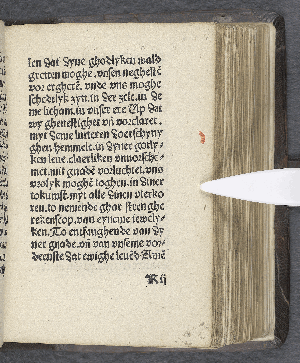 len dat dyne ghodlyken wald
greten moghe. vnsen neghestē
vor erghert. vnde vns moghe
schedelyk zyn. in der zele. in de
me licham. in vnser ere Up dat
wy ghenestighet vn̄ vorclaret.
myt deme lutteren doerschyny
ghen hemmele. in dyner godly-
ken leue. claerliken vnuorsche-
met. mit gnadē vorluchtet. vns
vrolyk moghē toghen. in diner
tokumst. myt alle dinen vterko
ren. to nemende ghar strenghe
rekenscop. van eyneme iewely-
ken. To entfanghende van dy
ner gnade. vn̄ van vnseme vor-
deenste dat ewighe leuēd. Amē
K ij